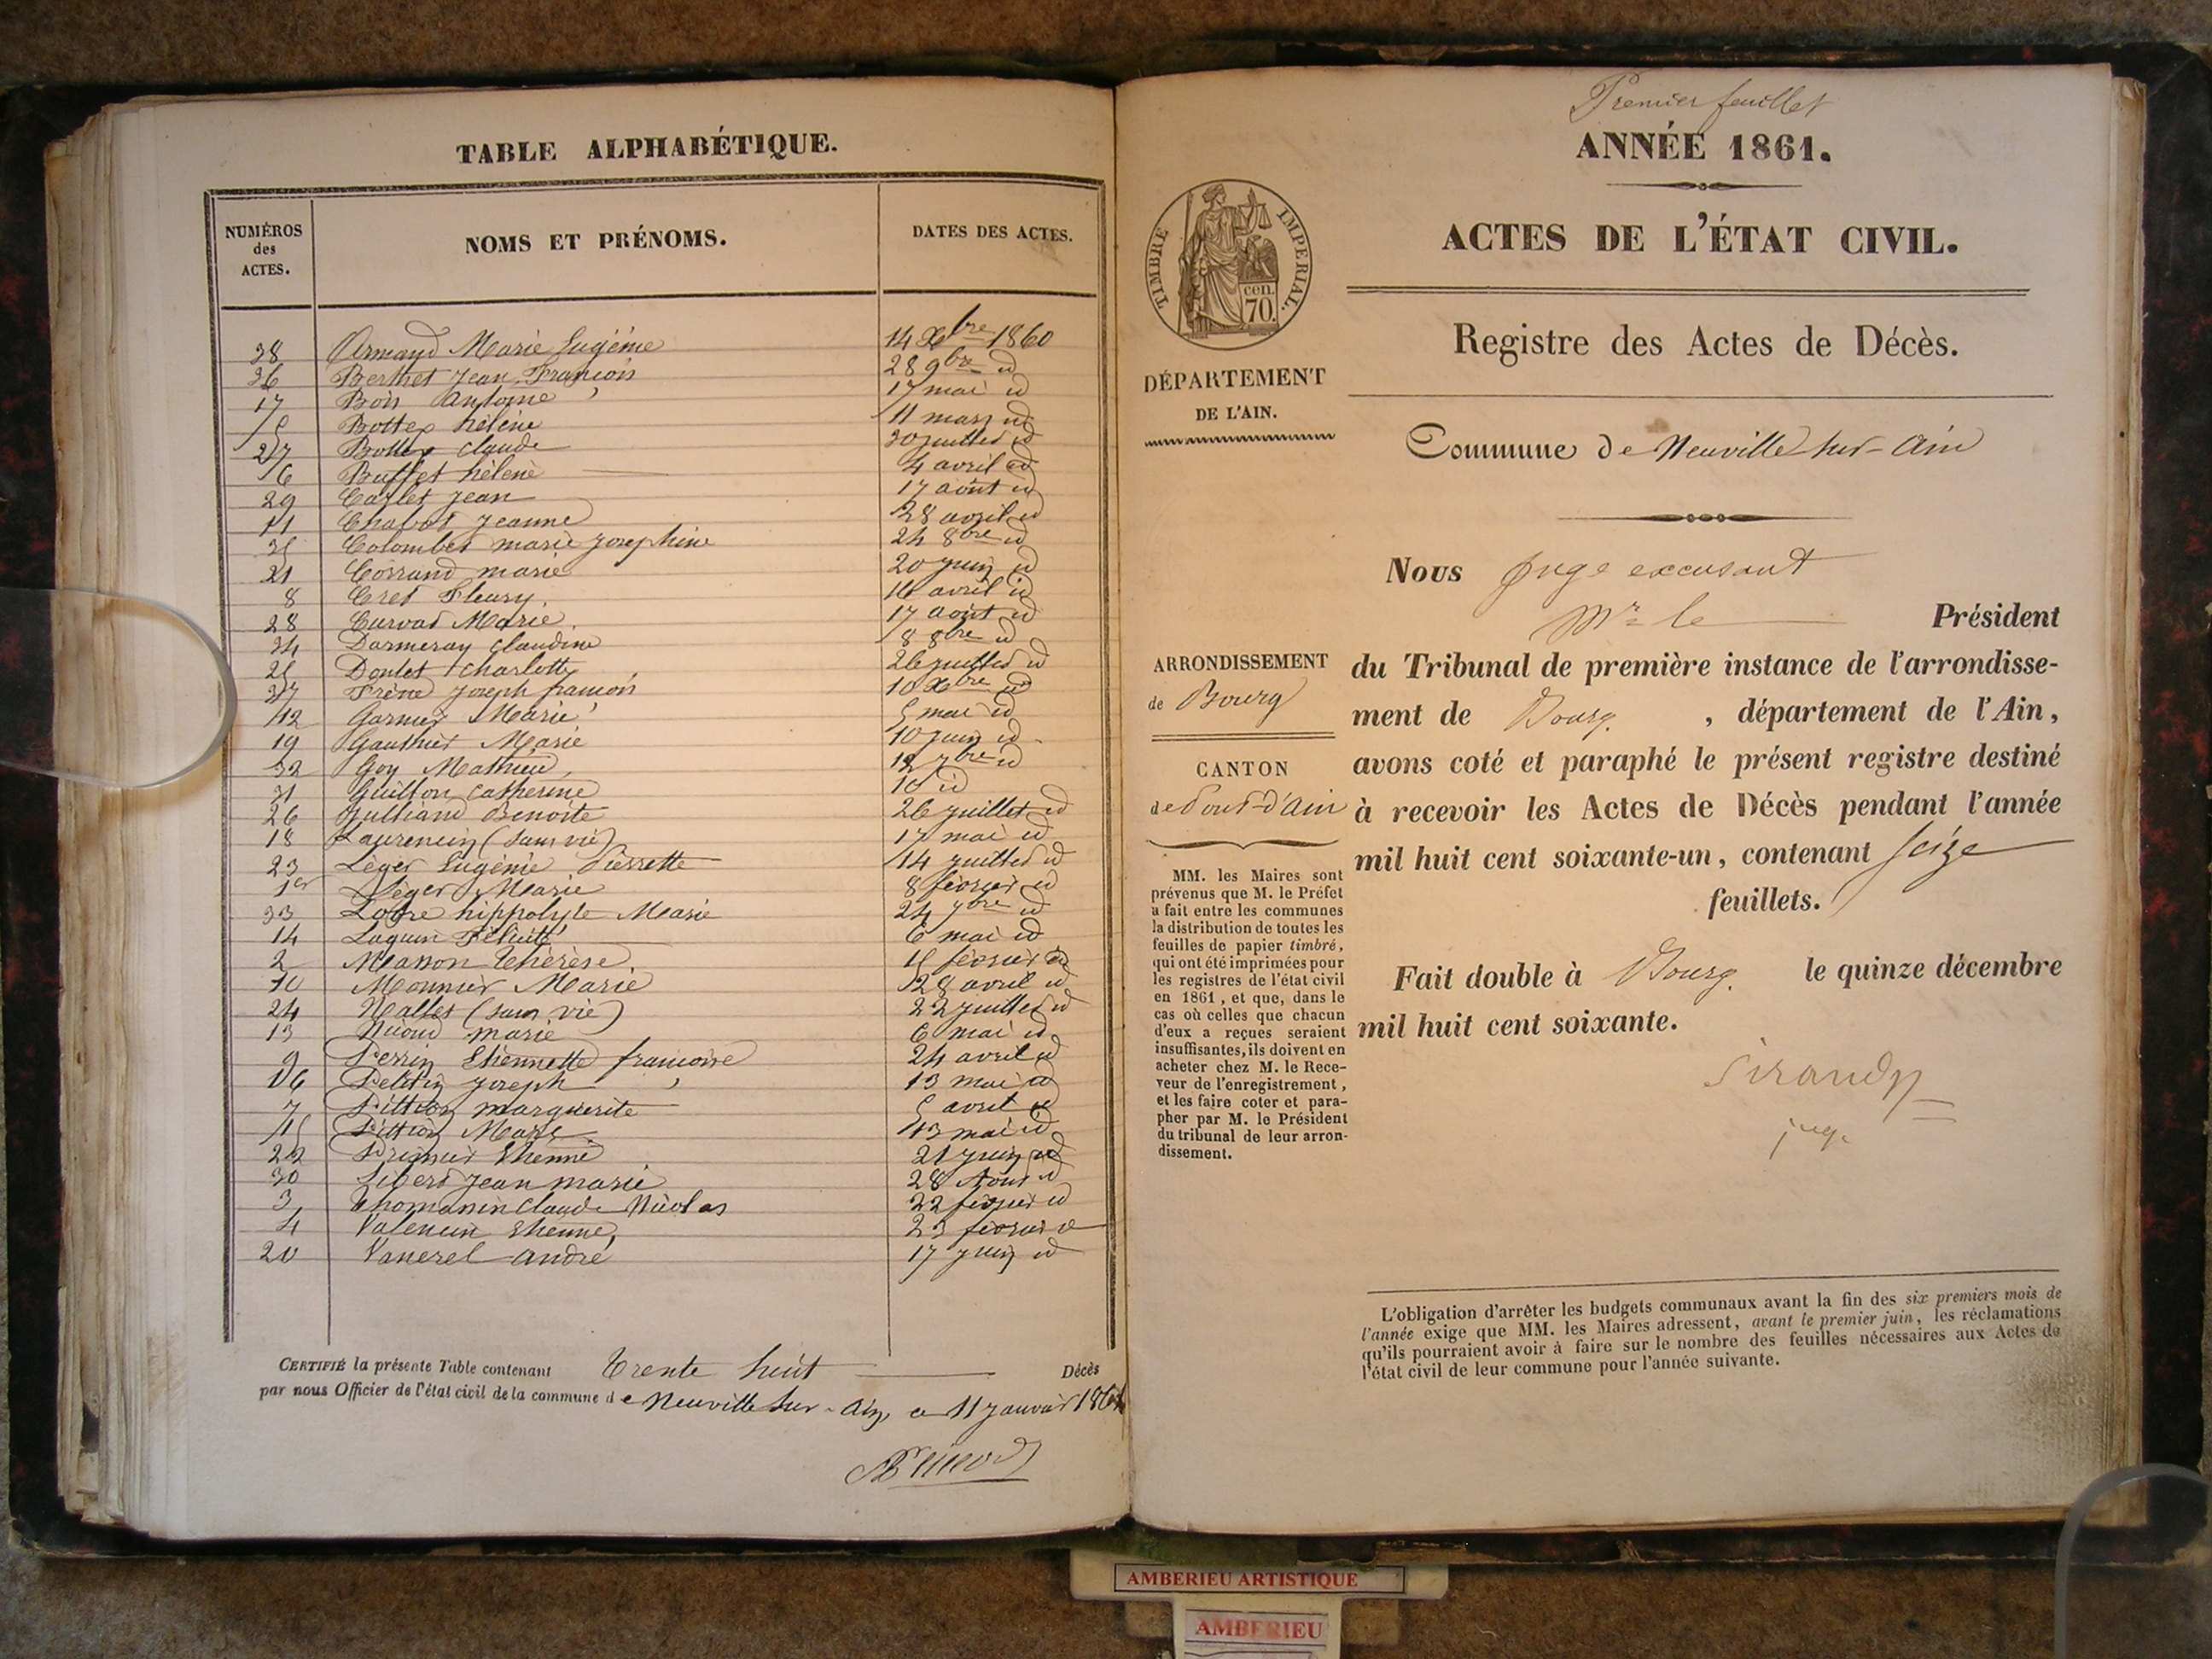 TABLE ALPHABÉTIQUE.
NUMÉROS des ACTES. NOMS ET PRÉNOMS. DATES DES ACTES.
38 Armand Marie Eugénie 14 Xbre 1860
36 Berthet Jean François 28 9bre id
17 Bois Antoine 17 mai id
5 Bottex hélène 11 mars id
27 Bottex Claude 30 juillet id
6 Buffet hélène 4 avril id
29 Carlet Jean 17 août id
11 Chabot Jeanne 28 avril id
35 Colombet marie Josephine 24 8bre id
21 Corrand marie 20 juin id
8 Cret Fleury 16 avril id
28 Curvat Marie 17 août id
34 Darmeray Claudine 8 8bre id
25 Doulet Charlotte 26 juillet id
37 Frène Joseph françois 10 Xbre id
12 Garnier Marie 5 mai id
19 Gauthier Marie 10 juin id
32 Goy Mathieu 12 7bre id
31 Guillon Catherine 10 id
26 Julliand Benoite 26 juillet id
18 Laurencin (sans vie) 17 mai id
23 Léger Eugénie Pierrette 14 juillet id
1er Léger Marie 8 février id
33 hippolyte Marie 24 7bre id
14 Luquin 6 mai id
2 Masson Thérèse 15 février id
10 Monnier Marie 28 avril id
24 Nallet (sans vie) 22 juillet id
13 Nicoud marie 6 mai id
9 Perrin Etiennette francoise 24 avril id
16 Petitin Joseph 13 mai id
7 Pittion marguerite 5 avril id
15 Pittion Marie 13 mai id
22 Prignier Etienne 21 juin id
30 Sibert Jean marie 28 Aout id
3 Thomassin Claude Nicolas 22 février id
4 Valencin Etienne 23 février id
20 Vanerel André 17 juin id
CERTIFIÉ la présente Table contenant Trente huit Décès
par nous Officier de l'état civil de la commune de Neuville sur-Ain, ce 11 janvier 1861
Premier feuillet
ANNÉE 1861.
ACTES DE L'ÉTAT CIVIL.
TIMBRE IMPERIAL.
cen. 70.
Registre des Actes de Décès.
DÉPARTEMENT
DE L'AIN.
Commune de Neuville sur-Ain
Nous Juge excusant
Mr le Président
ARRONDISSEMENT
de Bourg
du Tribunal de première instance de l'arrondisse-
ment de Bourg, département de l'Ain,
avons coté et paraphé le présent registre destiné
CANTON
de Pont-d'Ain
à recevoir les Actes de Décès pendant l'année
mil huit cent soixante-un, contenant Seize
feuillets.
MM. les Maires sont
prévenus que M. le Préfet
a fait entre les communes
la distribution de toutes les
feuilles de papier timbré,
qui ont été imprimées pour
les registres de l'état civil
en 1861, et que, dans le
cas où celles que chacun
d'eux a reçues seraient
insuffisantes, ils doivent en
acheter chez M. le Rece-
veur de l'enregistrement,
et les faire coter et para-
pher par M. le Président
du tribunal de leur arron-
dissement.
Fait double à Bourg. le quinze décembre
mil huit cent soixante.
Sirand
juge
L'obligation d'arrêter les budgets communaux avant la fin des six premiers mois de
l'année exige que MM. les Maires adressent, avant le premier juin, les réclamations
qu'ils pourraient avoir à faire sur le nombre des feuilles nécessaires aux Actes de
l'état civil de leur commune pour l'année suivante.
AMBERIEU ARTISTIQUE
AMBERIEU